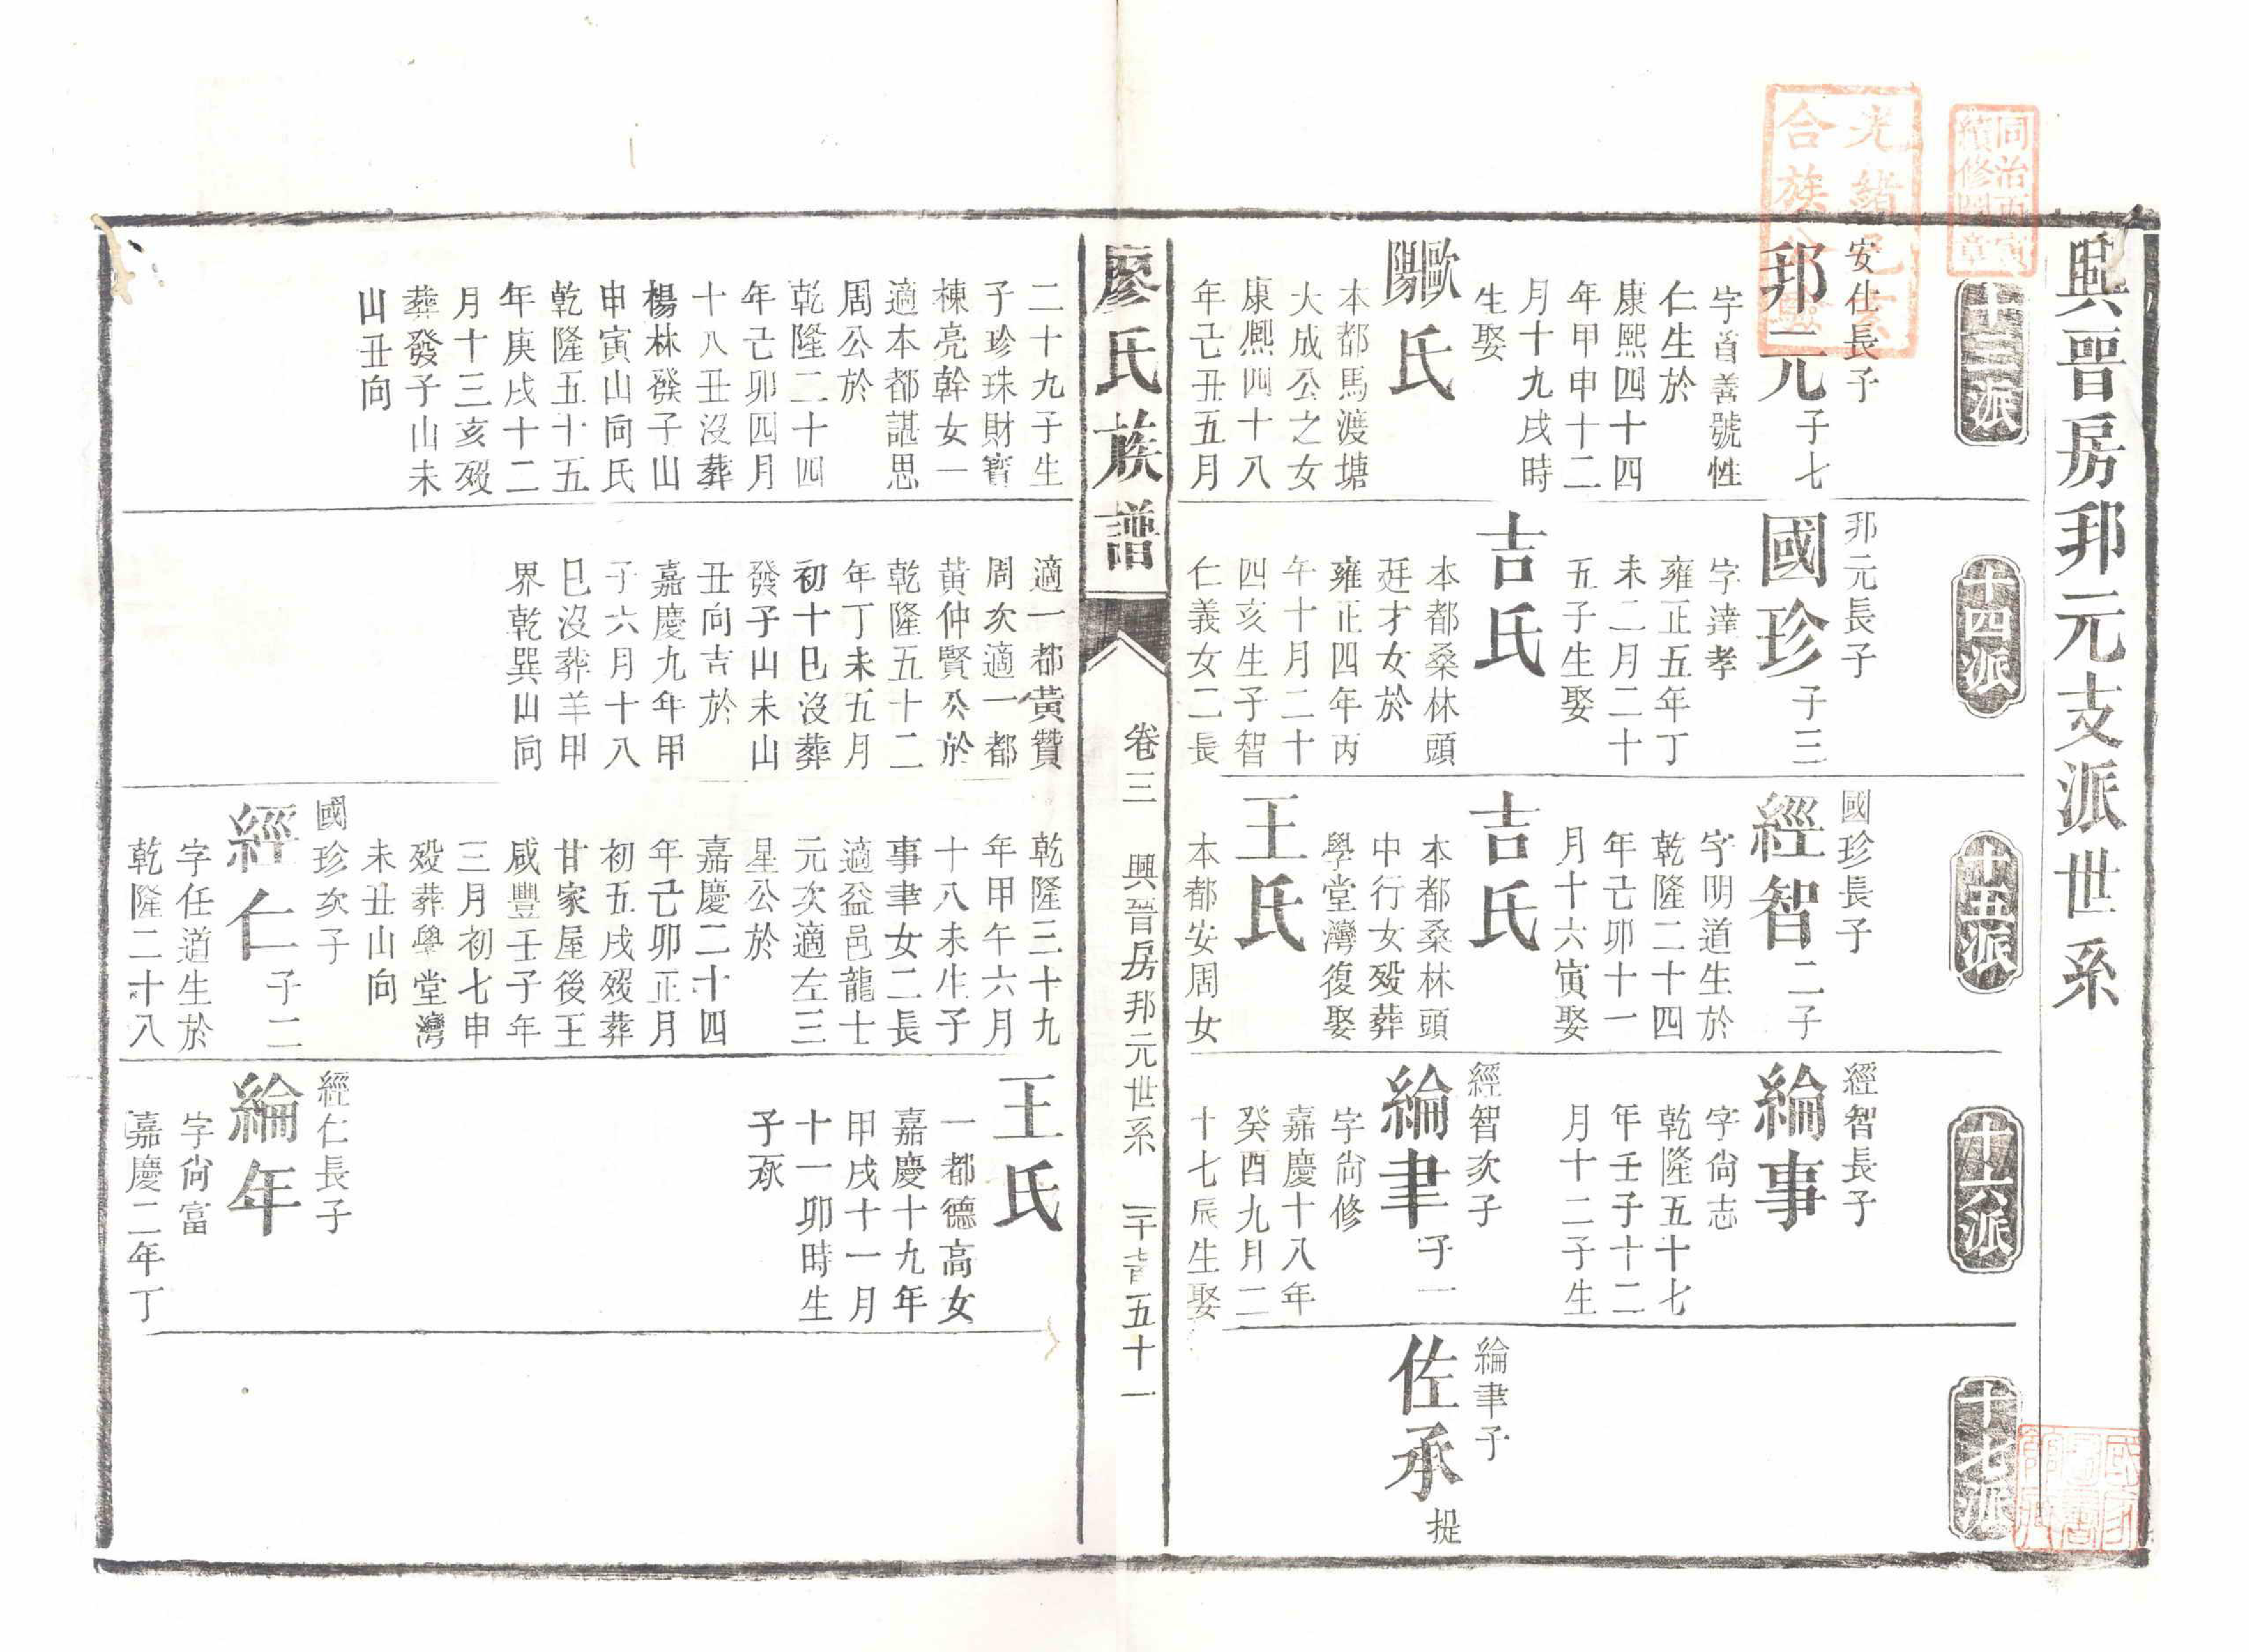 興晉房邦元支派世系
十三派
安仕長子
邦元 子七
字首善號性
仁生於
康熙四十四
年甲申十二
月十九戌時
生娶
歐陽氏
本都馬渡塘
大成公之女
康熈四十八
年己丑五月
二十九子生
子珍珠財寳
棟亮幹女一
適本都諶思
周公於
乾隆二十四
年己卯四月
十八丑沒葬
楊林發子山
申寅山向氏
乾隆五十五
年庚戌十二
月十三亥歿
葬發子山未
山丑向
十四派
邦元長子
國珍 子三
字達孝
雍正五年丁
未二月二十
五子生娶
吉氏
本都桑林頭
廷才女於
雍正四年丙
午十月二十
四亥生子智
仁義女二長
適一都黃贊
周次適一都
黃仲賢公於
乾隆五十二
年丁未五月
初十巳沒葬
發子山未山
丑向吉於
嘉慶九年甲
子六月十八
巳沒葬羊甲
界乾巽山向
十五派
國珍長子
經智 二子
字明道生於
乾隆二十四
年己卯十一
月十六寅娶
吉氏
本都桑林頭
中行女歿葬
學堂灣復娶
王氏
本都安周女
乾隆三十九
年甲午六月
十八未生子
事聿女二長
適益邑龍士
元次適左三
星公於
嘉慶二十四
年己卯正月
初五戌歿葬
甘家屋後王
咸豐壬子年
三月初七申
歿葬學堂灣
未丑山向
國珍次子
經仁 子二
字任道生於
乾隆二十八
十六派
經智長子
綸事
字尙志
乾隆五十七
年壬子十二
月十二子生
經智次子
綸聿 子一
字尙修
嘉慶十八年
癸酉九月二
十七辰生娶
王氏
一都德高女
嘉慶十九年
甲戌十一月
十一卯時生
子承
經仁長子
綸年
字尙富
嘉慶二年丁
十七派
綸聿子
佐承 提
廖氏族譜
卷三
興晉房邦元世系
五十一